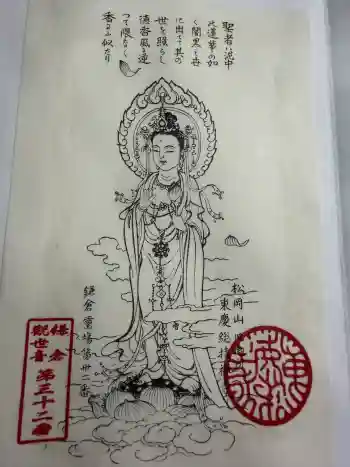 聖者ハ泥中
の蓮華の如
く闇黒の世
に出でて其の
世を照らし
徳香風を逆
つて限りなく
香るに似たり
松岡山
東慶総持
鎌倉霊場第卅二番
鎌倉
観世音
第三十二番